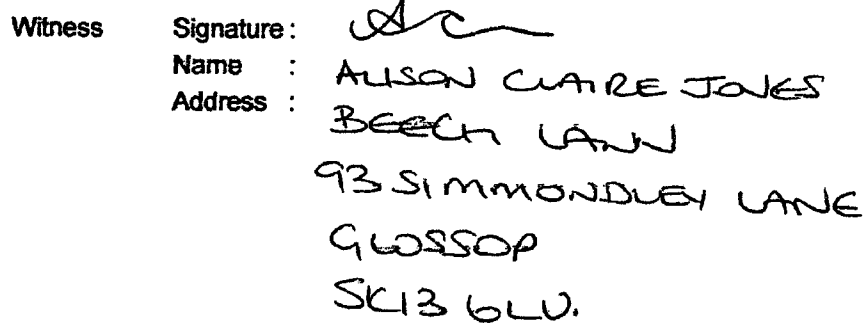 Witness Signature :
Name : ALISON CLAIRE JONES
Address : BEECH LAWN
93 SIMMONDLEY LANE
GLOSSOP
SK13 6LU.